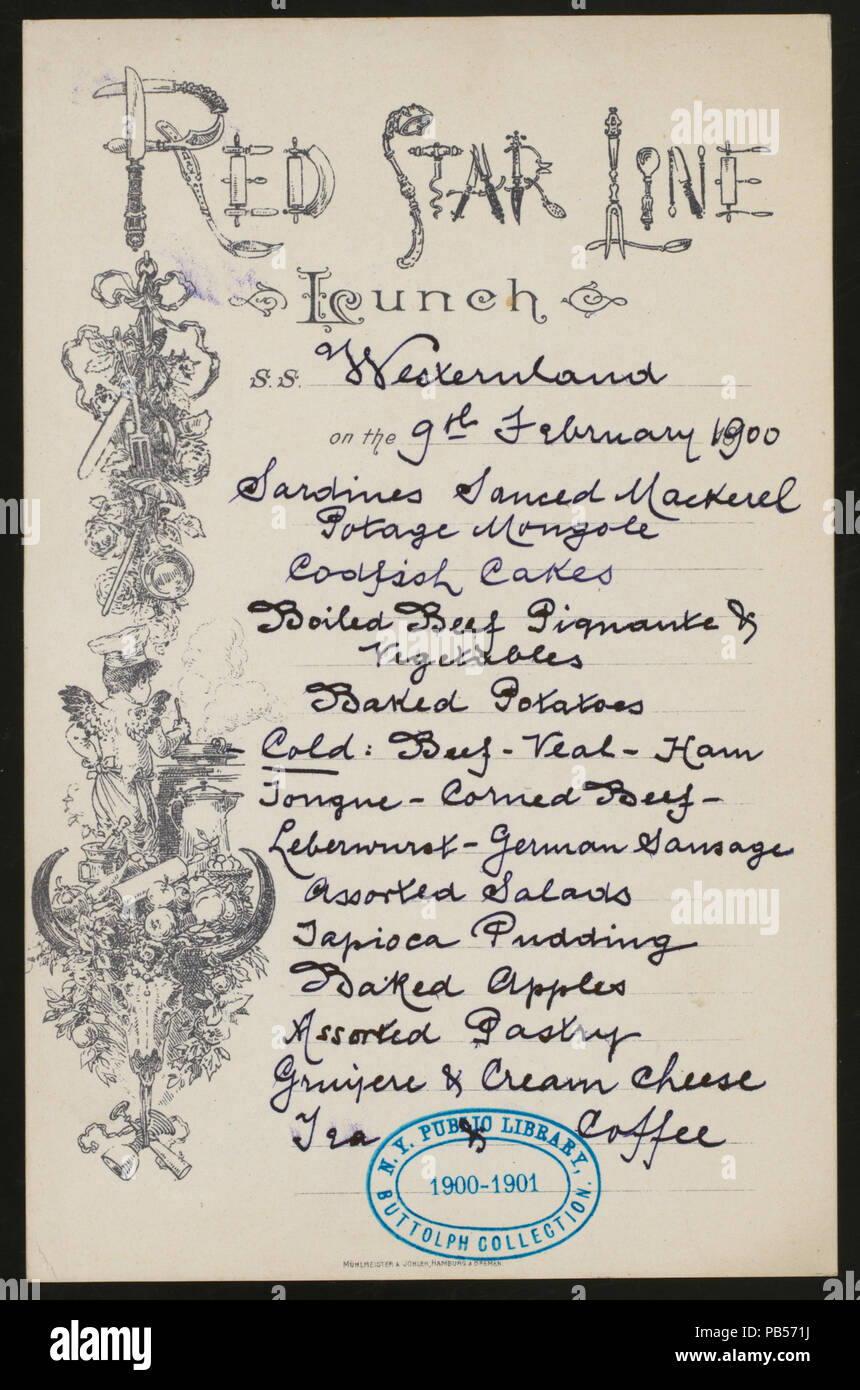 RED STAR LINE
Lunch
S.S. Westernland
on the 9th February 1900
Sardines Sauced Mackerel
Potage Mongole
Codfish Cakes
Boiled Beef Piquante &
Vegetables
Baked Potatoes
Cold: Beef - Veal - Ham
Tongue - Corned Beef -
Leberwurst - German Sausage
Assorted Salads
Tapioca Pudding
Baked Apples
Assorted Pastry
Gruijere & Cream Cheese
Tea & Coffee
N.Y. PUBLIC LIBRARY,
1900-1901
BUTTOLPH COLLECTION.
MÜHLMEISTER & JOHLER, HAMBURG & BREMEN.
alamy
alamy
alamy
alamy
a
a
a
alamy
Image ID: PB571J
www.alamy.com